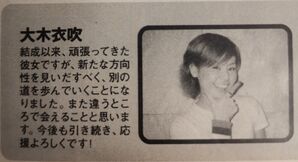 大木衣吹
結成以来、頑張ってきた
彼女ですが、新たな方向
性を見いだすべく、別の
道を歩んでいくことにな
りました。また違うとこ
ろで会えることと思いま
す。今後も引き続き、応
援よろしくです!